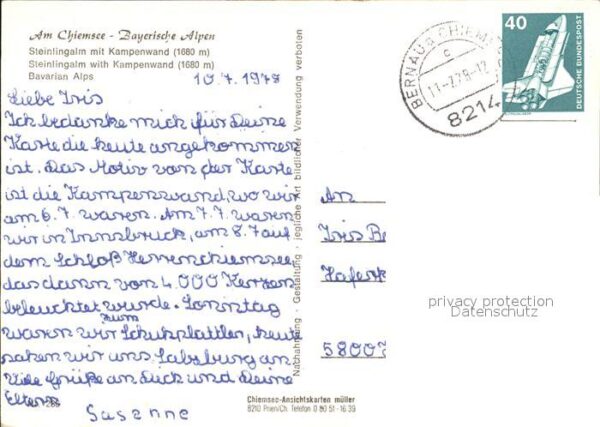 Am Chiemsee - Bayerische Alpen
Steinlingalm mit Kampenwand (1680 m)
Steinlingalm with Kampenwand (1680 m)
Bavarian Alps
10.7.1978
Liebe Iris
Ich bedanke mich für Deine
Karte die heute angekommen
ist. Das Motiv von der Karte
ist die Kampenwand, wo wir
am 6.7. waren. Am 7.7. waren
wir in Innsbruck, am 8.7 auf
dem Schloß Herrenchiemsee,
das dann von 4.000 Kerzen
beleuchtet wurde. Sonntag
waren wir zum Schuhplattler, heute
sahen wir uns Salzburg an
Viele Grüße an Dich und Deine
Eltern
Susanne
Nachahmung - Gestaltung - jegliche Art bildlicher Verwendung verboten
BERNAU a CHIEMSEE
c
11.-7.78-12
8214
40
DEUTSCHE BUNDESPOST
An
Iris Be
Hafer
5800
privacy protection
Datenschutz
Chiemsee-Ansichtskarten müller
8210 Prien/Ch. Telefon 0 80 51 - 16 39